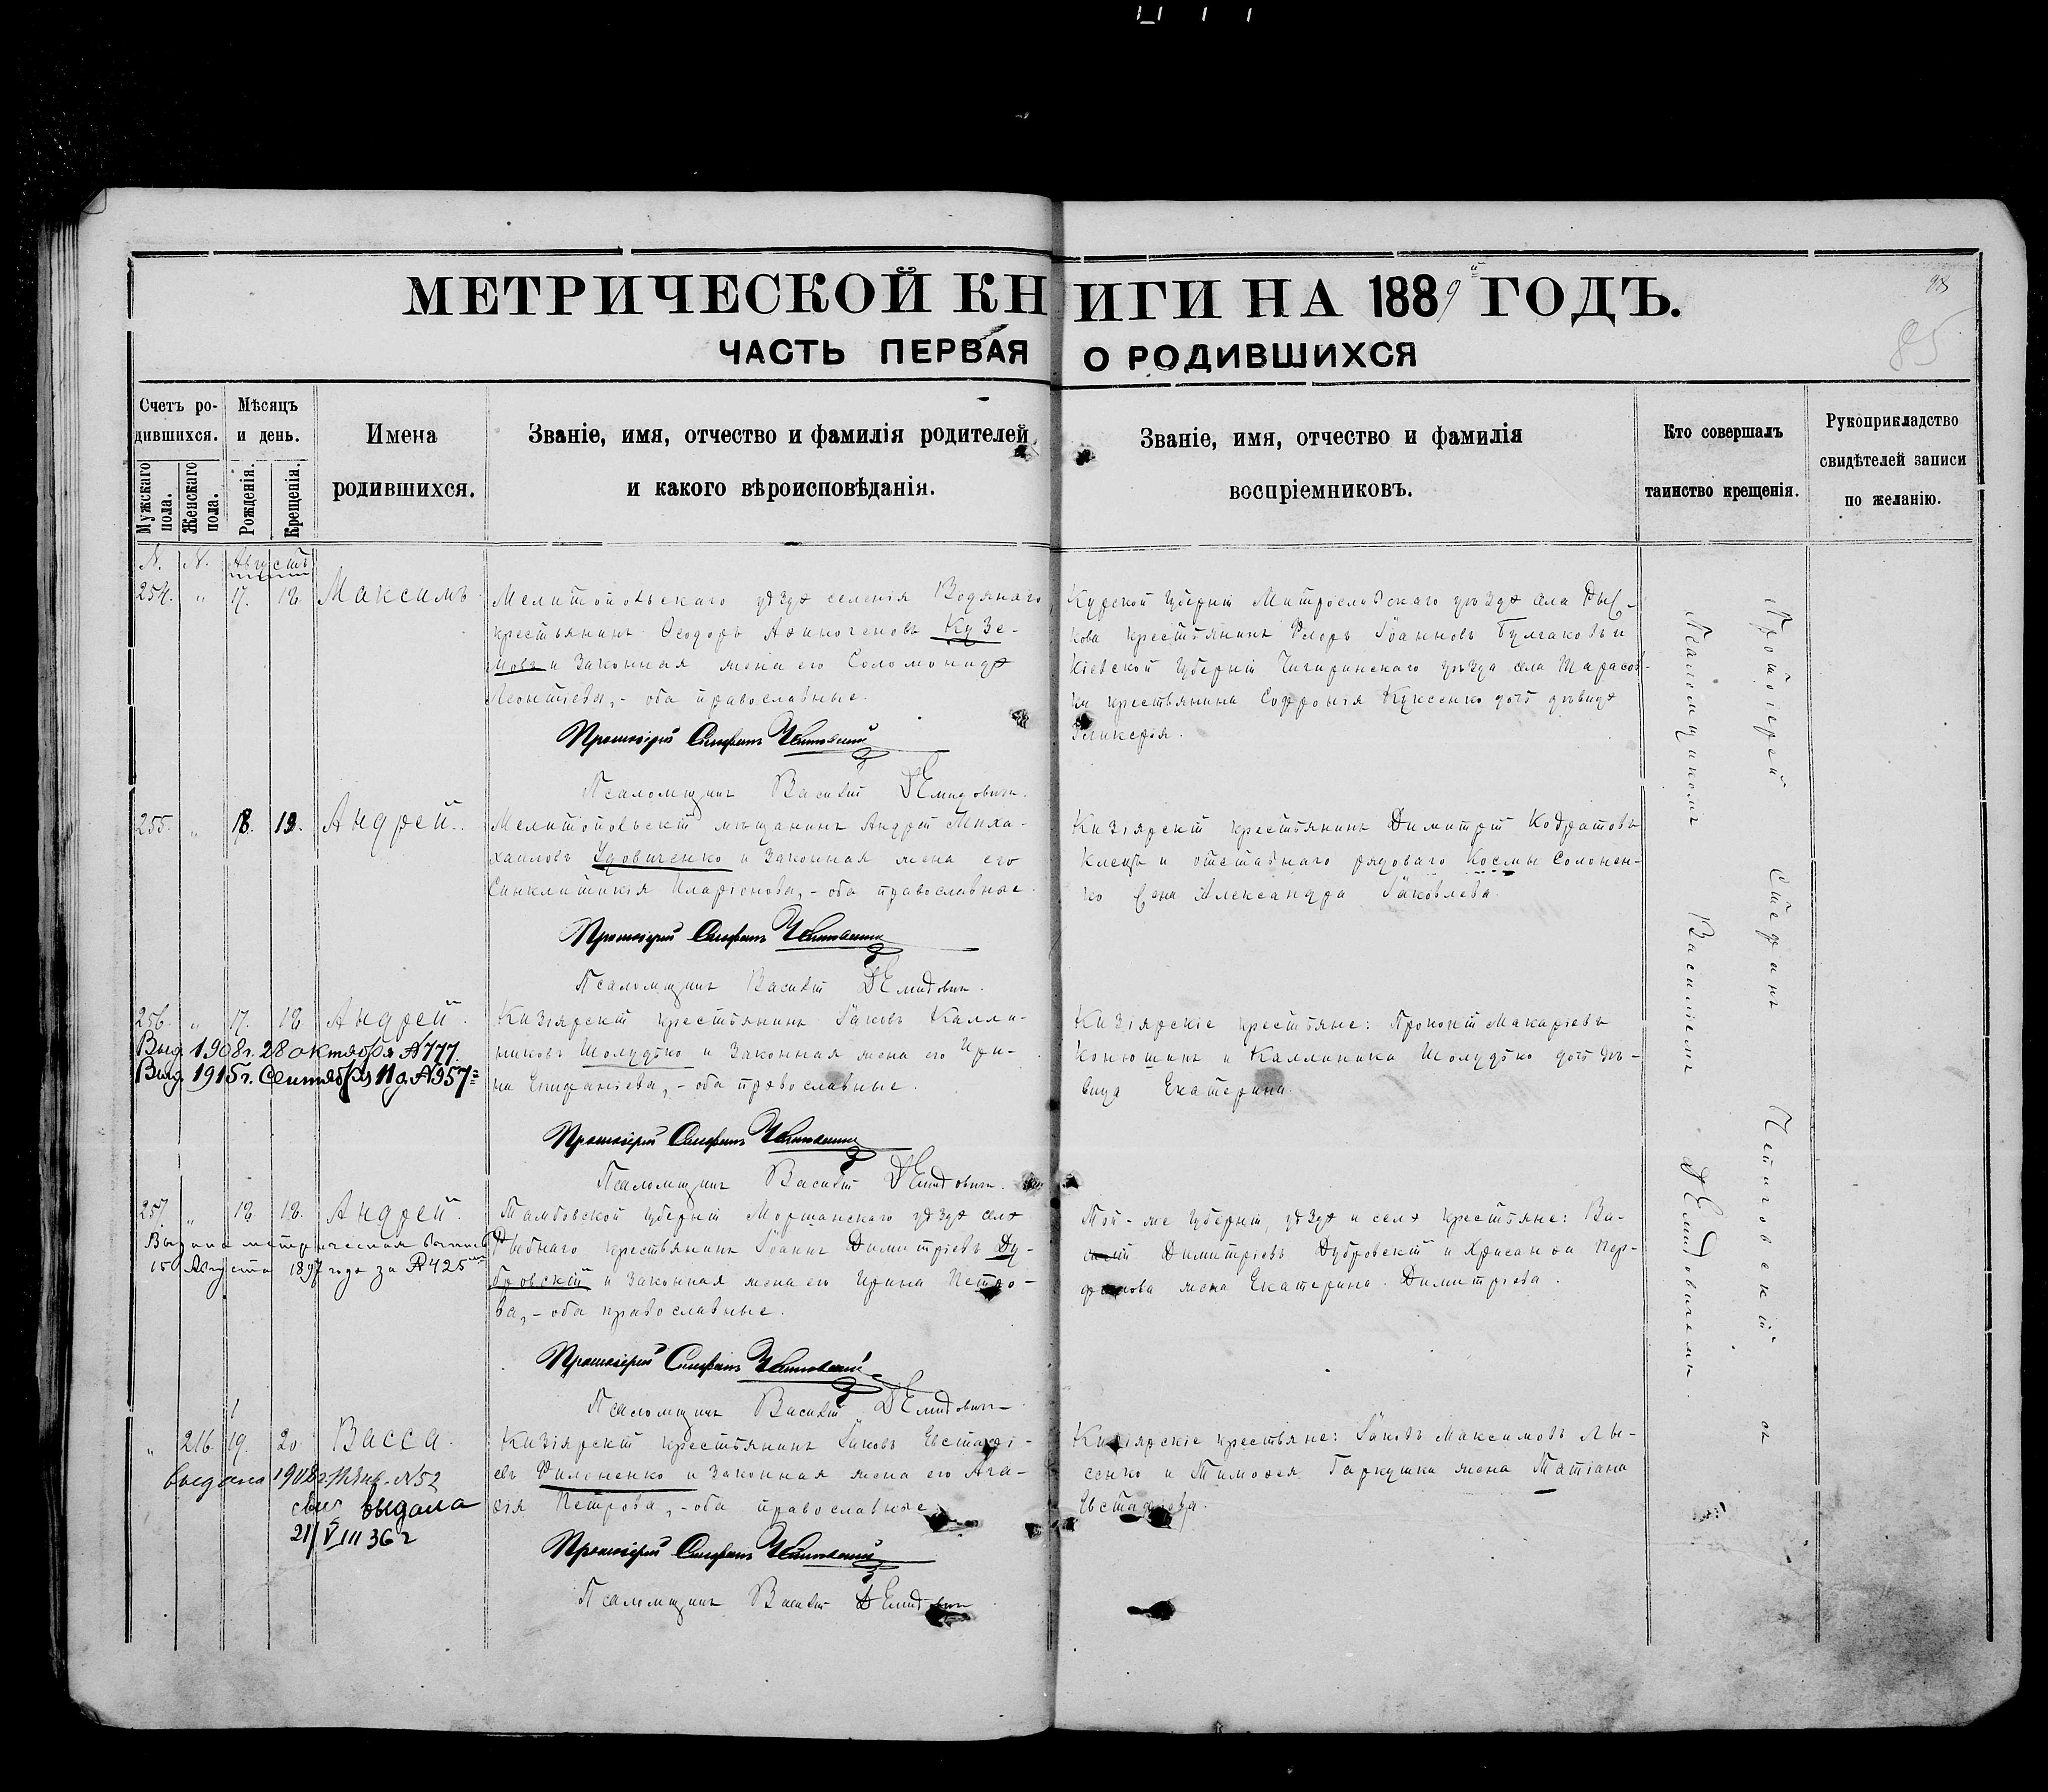 МЕТРИЧЕСКОЙ КНИГИ НА 1889й ГОДЪ.
ЧАСТЬ ПЕРВАЯ О РОДИВШИХСЯ
85
Счетъ ро-
дившихся.
Мужскаго пола.
Женскаго пола.
Мѣсяцъ
и день.
Рожденія.
Крещенія.
Имена
родившихся.
Званіе, имя, отчество и фамилія родителей
и какого вѣроисповѣданія.
Званіе, имя, отчество и фамилія
воспріемниковъ.
Кто совершалъ
таинство крещенія.
Рукоприкладство
свидѣтелей записи
по желанію.
N. N. Августъ
254. " 17. 18. Максимъ
Мелитопольскаго уѣзда селенія Водянаго
крестьянинъ Ѳеодоръ Аѳиногеновъ Кузе-
мовъ и законная жена его Соломонида
Леонтіева, - оба православные.
Протоіерей Стефанъ
Псаломщикъ Василій Демидовичъ.
Курской губерніи уѣзда села
крестьянинъ Флоръ Іоанновъ Булгаковъ и
Кіевской губерніи Чигиринскаго уѣзда села Тарасов-
ки крестьянина Софронія Куксенко дочь дѣвица
Гликерія.
255. " 18. 19. Андрей.
Мелитопольскій мѣщанинъ Андрей Миха-
хаиловъ Удовиченко и законная жена его
Синклитикія Иларіонова, - оба православные.
Протоіерей Стефанъ
Псаломщикъ Василій Демидовичъ.
Кизіярскій крестьянинъ Димитрій Кодратовъ
Клецъ и отставнаго рядоваго Космы Солонен-
ко жена Александра Іаковлева.
256. " 17. 18. Андрей.
Выд. 1908 г. 28 октября №777.
Выд. 1915 г. Сентября 11 д. №957
Кизіярскій крестьянинъ Іаковъ Калли-
никовъ Шолудько и законная жена его Ири-
на Епифаніева, - оба православные.
Протоіерей Стефанъ
Псаломщикъ Василій Демидовичъ.
Кизіярскіе крестьяне: Прокопій Макаріевъ
Конюшинъ и Каллиника Шолудько дочь дѣ-
вица Екатерина.
257. " 18. 18. Андрей.
Выдана метрическая выпись
15 Августа 1897 года за №425
Тамбовской губерніи Моршанскаго уѣзда села
Рыбнаго крестьянинъ Іоаннъ Димитріевъ Ду-
бровскій и законная жена его Ирина Петро-
ва, - оба православные.
Протоіерей Стефанъ
Псаломщикъ Василій Демидовичъ
Той-же губерніи, уѣзда и села крестьяне: Ва-
силій Димитріевъ Дубровскій и Хрисанѳа
жена Екатерина Димитріева.
" 216 19. 20 Васса.
выдана №52
выдана
21/VIII 36 г
Кизіярскій крестьянинъ Іаковъ Евстафі-
евъ Филоненко и законная жена его Ага-
ѳія Петрова, - оба православные.
Протоіерей Стефанъ
Псаломщикъ Василій Демидовичъ
Кизіярскіе крестьяне: Іаковъ Максимовъ Лы-
сенко и Тимоѳея Гаркушки жена Татіана
Евстафіева.
Протоіерей Стефанъ съ
Псаломщикомъ Василіемъ Демидовичемъ.